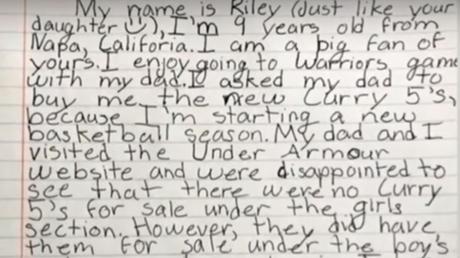 My name is Riley (Just like your
daughter :)), I'm 9 years old from
Napa, Califoria. I am a big fan of
yours. I enjoy going to Warriors game
with my dad. I asked my dad to
buy me the new Curry 5's,
because I'm starting a new
basketball season. My dad and I
visited the Under Armour
website and were disappointed to
see that there were no Curry
5's for sale under the girls
section. However, they did have
them for sale under the boy's